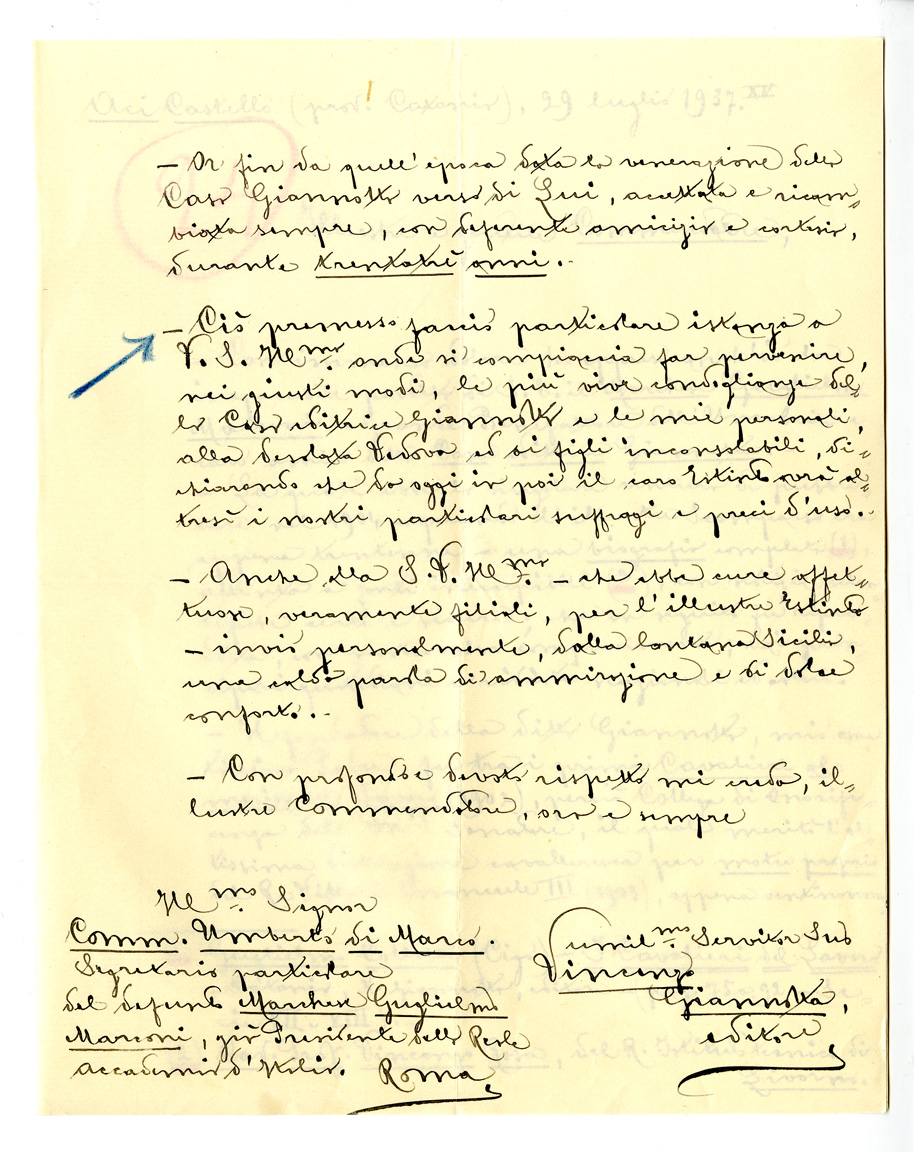 – Si fin da quell'epoca data la venerazione della
Casa Giannotta verso di Lui, accettata e ricam=
biata sempre, con deferente amicizia e cortesia,
durante trentatrè anni. -
– Ciò premesso faccio particolare istanza a
V. S. Ill.ma onde si compiaccia far pervenire,
nei giusti modi, le più vive condoglianze del=
la Casa editrice Giannotta e le mie personali,
alla desolata Vedova ed ai figli inconsolabili, di=
chiarando che da oggi in poi il caro Estinto avrà al=
tresì i nostri particolari suffragi e preci d'uso. -
– Anche alla S. V. Ill.ma – che ebbe cure affet=
tuose, veramente filiali, per l'illustre Estinto
– invio personalmente, dalla lontana Sicilia,
una calda parola di ammirazione e di dolce
conforto. -
– Con profondo e devoto rispetto mi creda, il=
lustre Commendatore, ora e sempre
Ill.mo Signor
Comm. Umberto di Marco.
Segretario particolare
del defunto Marchese Guglielmo
Marconi, già Presidente della Reale
Accademia d'Italia. Roma
Sumil.mo Servitor Suo
Vincenzo
Giannotta,
editore
Aci Castello (prov. Catania), 29 luglio 1937. XV